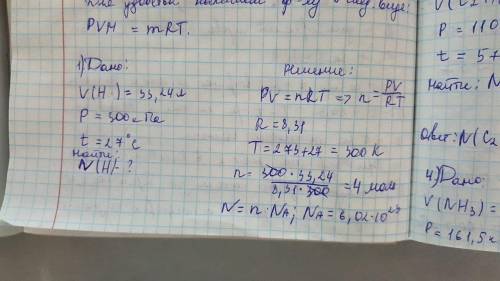 PVM = mRT.
1) Дано:
V(H ) = 33,24л
P = 300кПа
t = 27°C
найти:
N(H)-?
Решение:
PV = nRT => n = PV/RT
R = 8,31
T = 273+27 = 300 K
n = 300 · 33,24 / 8,31 · 300 = 4 мол
N = n · NA; NA = 6,02·10²³
P = 110
t = 5+
найти: N
Ответ: N(C2
4) Дано:
V(NH3) =
P = 161,5к